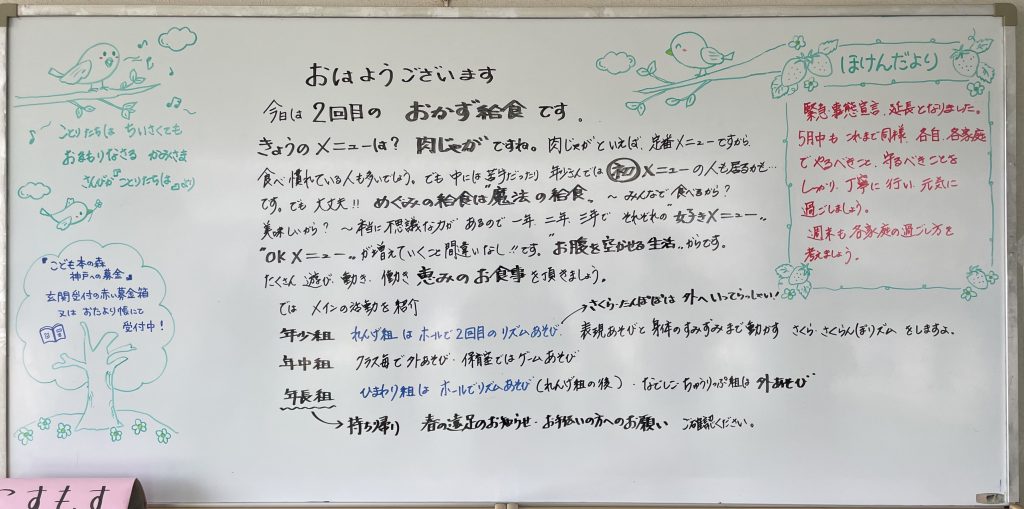 おはようございます
今日は 2回目の おかず給食 です。
きょうのメニューは? 肉じゃが ですね。肉じゃがといえば、定番メニューですから
食べ慣れている人も多いでしょう。でも中には苦手だったり 年少さんでは 初 メニューの人も居るかも…
です。でも 大丈夫!! めぐみの給食は"魔法の給食"。 〜みんなで食べるから?
美味しいから? 〜本当に不思議な力が あるので 一年、二年、三年で それぞれの"好きメニュー"
"OKメニュー"が増えていくこと間違いなし!!です。"お腹を空かせる生活"からです。
たくさん 遊び、動き、働き 恵みのお食事 を頂きましょう。
では メインの活動を紹介
さくら・たんぽぽは 外へいってらっしゃい!
年少組 れんげ組は ホールで2回目のリズムあそび. 表現あそびと身体のすみずみまで動かす さくら・さくらんぼリズム をしますよ。
年中組 クラス毎で外あそび・保育室ではゲームあそび
年長組 ひまわり組は ホールでリズムあそび(れんげ組の後)・なでしこ・ちゅうりっぷ組は 外あそび
持ち帰り 春の遠足のお知らせ・お手伝いの方へのお願い ご確認ください。
ことりたちは ちいさくても
おまもりなさる かみさま
さんびか"ことりたちは"より
『こども本の森
神戸への募金』
玄関受付の赤い募金箱
又は おたより帳にて
受付中!
ほけんだより
緊急事態宣言、延長となりました。
5月中も これまで同様、各自、各家庭
でやるべきこと、守るべきことを
しっかり、丁寧に行い、元気に
過ごしましょう。
週末も各家庭の過ごし方を
考えましょう。
こすもす